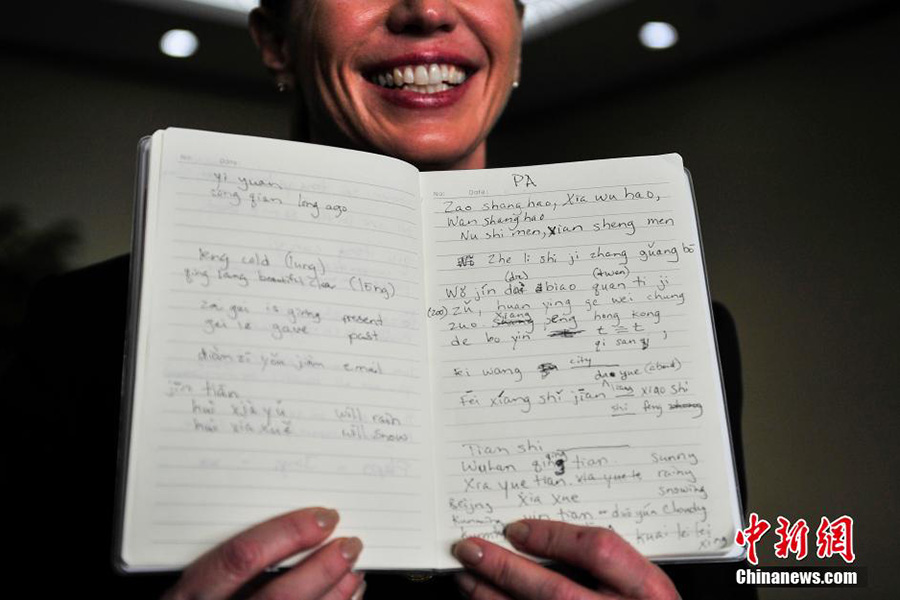 No. Date
yi yuan
cong qian long ago
leng cold (lung)
qing lang beautiful clear (lōng)
za gei is giving present
gei le gave past
diàn zǐ yóu jiàn email
jīn tiān
hui xià yǔ will rain
hui xia xuě will snow
No. Date
PA
Zao shang hao, Xia wu hao,
Wan shang hao
Nu shi men, xian sheng men
Zhe li shi ji zhang guǎng bō
Wǒ jīn dai biao quan ti ji
(zoo) zǔ, huan ying ge wei chung
zuo xiang gēng hong kong
de bo yin
qi san
xi wang city
da yue (about)
Fēi xíang shí jiān liang xiao shi
shi feng
Tian shi
Wuhan qing tian sunny
Xia yue tian xia yue te rainy
Beijng xia xue snowing
Kunming yin tian = duō yún cloudy
kuai lei lei
xing
中新网
Chinanews.com